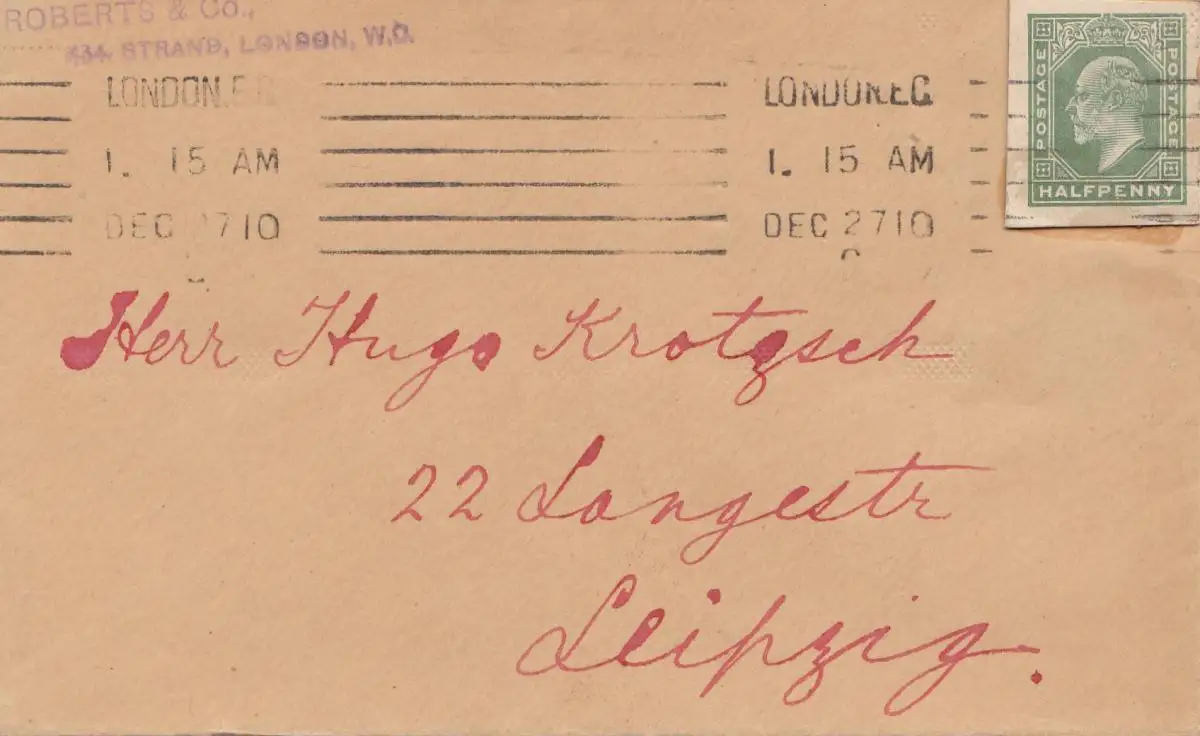 ROBERTS & Co.,
434 STRAND, LONDON, W.C.
LONDON.E.C
1. 15 AM
DEC 27 10
LONDON.E.C
1. 15 AM
DEC 27 10
POSTAGE
POSTAGE
HALFPENNY
Herr Hugo Krotzsch
22 Langestr
Leipzig.